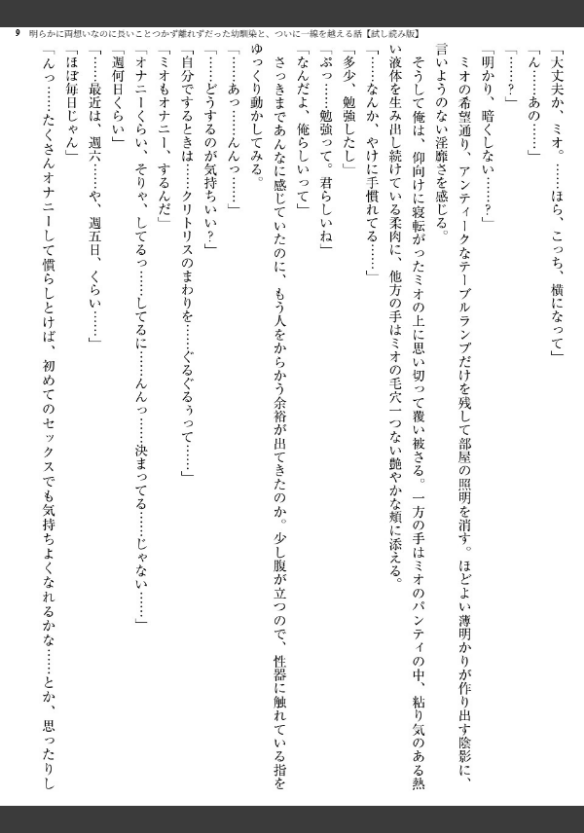 9 明らかに両想いなのに長いことつかず離れずだった幼馴染と、ついに一線を越える話【試し読み版】
「大丈夫か、ミオ。……ほら、こっち、横になって」
「ん……あの……」
「……？」
「明かり、暗くしない……？」
ミオの希望通り、アンティークなテーブルランプだけを残して部屋の照明を消す。ほどよい薄明かりが作り出す陰影に、
言いようのない淫靡さを感じる。
そうして俺は、仰向けに寝転がったミオの上に思い切って覆い被さる。一方の手はミオのパンティの中、粘り気のある熱
い液体を生み出し続けている柔肉に、他方の手はミオの毛穴一つない艶やかな頬に添える。
「……なんか、やけに手慣れてる……」
「多少、勉強したし」
「ぷっ……勉強って。君らしいね」
「なんだよ、俺らしいって」
さっきまであんなに感じていたのに、もう人をからかう余裕が出てきたのか。少し腹が立つので、性器に触れている指を
ゆっくり動かしてみる。
「……あっ……んんっ……」
「……どうするのが気持ちいい？」
「自分でするときは……クリトリスのまわりを……ぐるぐるぅって……」
「ミオもオナニー、するんだ」
「オナニーくらい、そりゃ、してるっ……してるに……んんっ……決まってる……じゃない……」
「週何日くらい」
「……最近は、週六……や、週五日、くらい……」
「ほぼ毎日じゃん」
「んっ……たくさんオナニーして慣らしとけば、初めてのセックスでも気持ちよくなれるかな……とか、思ったりし